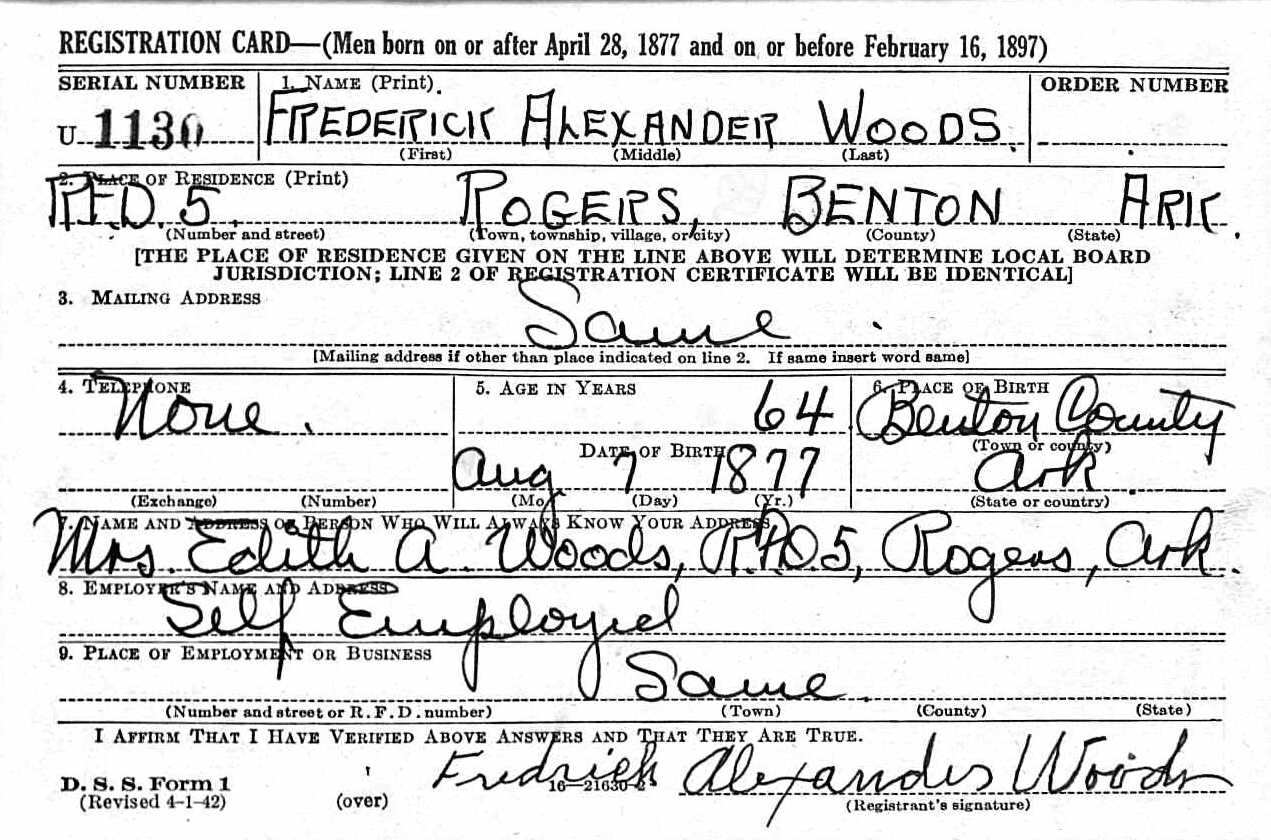 REGISTRATION CARD—(Men born on or after April 28, 1877 and on or before February 16, 1897)
SERIAL NUMBER 1. NAME (Print) ORDER NUMBER
U 1130 FREDERICK ALEXANDER WOODS.
(First) (Middle) (Last)
2. PLACE OF RESIDENCE (Print)
RFD 5, ROGERS, BENTON ARK.
(Number and street) (Town, township, village, or city) (County) (State)
[THE PLACE OF RESIDENCE GIVEN ON THE LINE ABOVE WILL DETERMINE LOCAL BOARD
JURISDICTION; LINE 2 OF REGISTRATION CERTIFICATE WILL BE IDENTICAL]
3. MAILING ADDRESS
Same
[Mailing address if other than place indicated on line 2. If same insert word same]
4. TELEPHONE 5. AGE IN YEARS 6. PLACE OF BIRTH
None. 64 Benton County
DATE OF BIRTH (Town or county)
Aug 7 1877 Ark.
(Exchange) (Number) (Mo.) (Day) (Yr.) (State or country)
7. NAME AND ADDRESS OF PERSON WHO WILL ALWAYS KNOW YOUR ADDRESS
Mrs. Edith A. Woods, R.F.D. 5, Rogers, Ark.
8. EMPLOYER'S NAME AND ADDRESS
Self Employed
9. PLACE OF EMPLOYMENT OR BUSINESS
Same.
(Number and street or R. F. D. number) (Town) (County) (State)
I AFFIRM THAT I HAVE VERIFIED ABOVE ANSWERS AND THAT THEY ARE TRUE.
Fredrick Alexander Woods
D. S. S. Form 1 16—21630-2
(Revised 4-1-42) (over) (Registrant's signature)